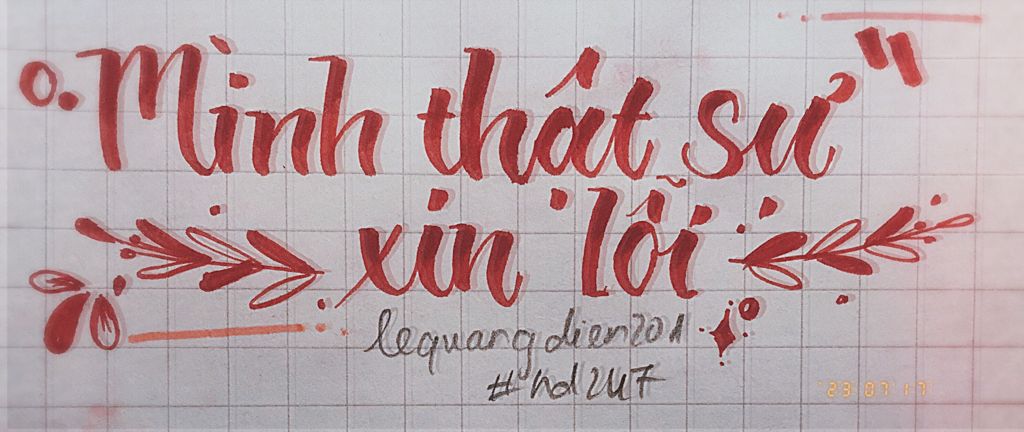 Mình thật sự
xin lỗi
lequangdien201
#nd247
'23 07 17